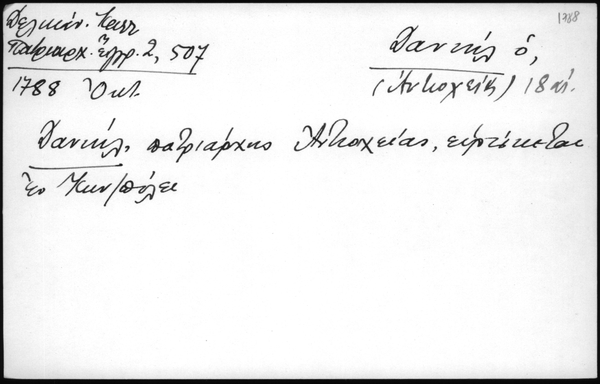 1788
Δελικάν. Καλλ
Πατριαρχ. Ἔγγρ. 2, 507
1788 Ὀκτ.
Δανιήλ ὁ,
(Ἀντιοχείας) 18 αἰ.
Δανιήλ, πατριάρχης Ἀντιοχείας, εὑρίσκεται
ἐν Κων/πόλει